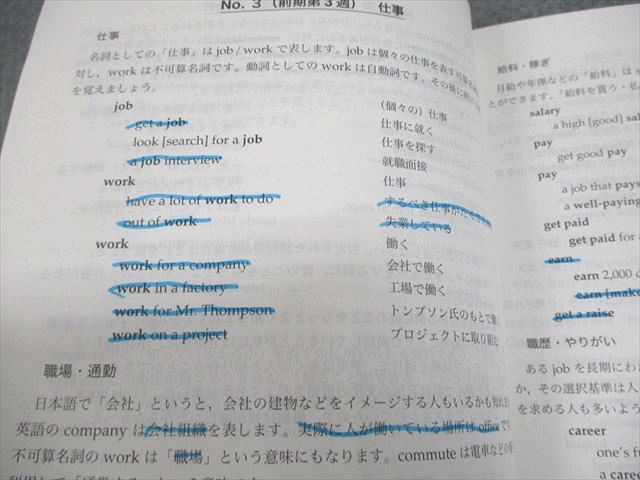 No. 3 （前期第3週） 仕事
仕事
名詞としての「仕事」は job / work で表します。job は個々の仕事を表す可算
対し，work は不可算名詞です。動詞としての work は自動詞です。その後に
を覚えましょう。
job （個々の）仕事
get a job 仕事に就く
look [search] for a job 仕事を探す
a job interview 就職面接
work 仕事
have a lot of work to do するべき仕事がたくさん
out of work 失業している
work 働く
work for a company 会社で働く
work in a factory 工場で働く
work for Mr. Thompson トンプソン氏のもとで働く
work on a project プロジェクトに取り組む
職場・通勤
日本語で「会社」というと，会社の建物などをイメージする人もいるかも知れ
英語の company は会社組織を表します。実際に人が働いている場所は office です
不可算名詞の work は「職場」という意味にもなります。commute は電車などの
給料・稼ぎ
月給や年俸などの「給料」は
とができます。「給料を貰う・払
salary
a high [good] sal
pay
get good pay
pay
a job that pays
a well-paying
get paid
get paid for
earn
earn 2,000
earn [make
get a raise
職歴・やりがい
ある job を長期にわ
か，その選択基準は人
を求める人も多いよう
career
one's first
a career